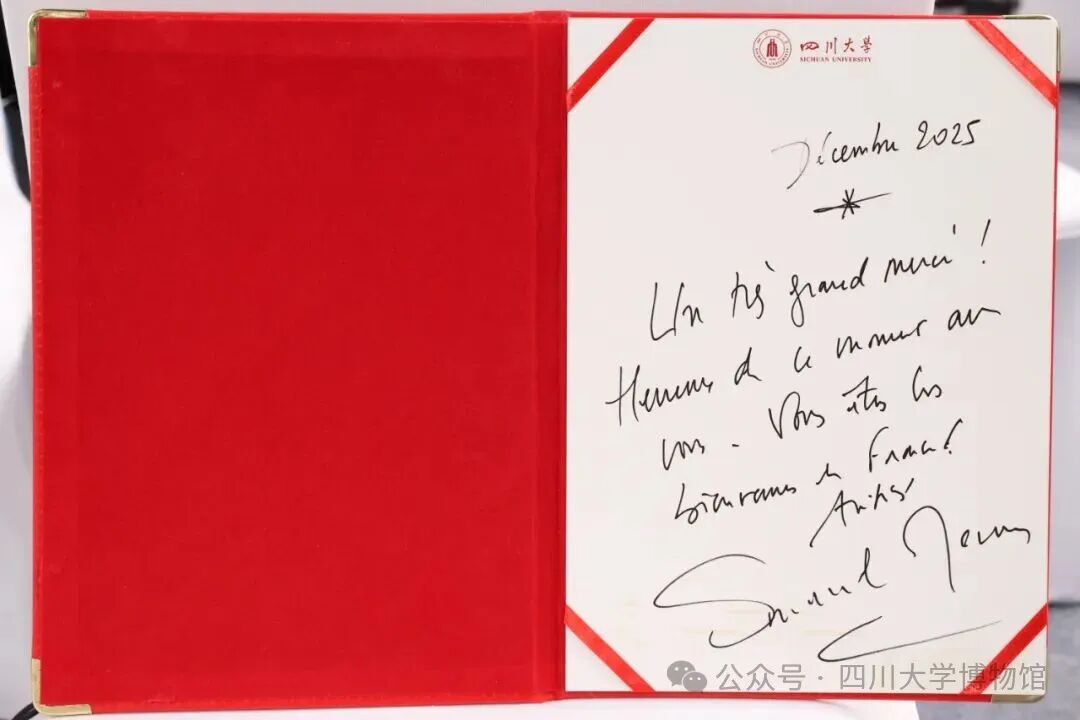 四川大学
SICHUAN UNIVERSITY
Décembre 2025
Un très grand merci !
Heureux de ce moment avec
vous - Vous êtes les
bienvenus en France !
Amitiés
公众号 · 四川大学博物馆